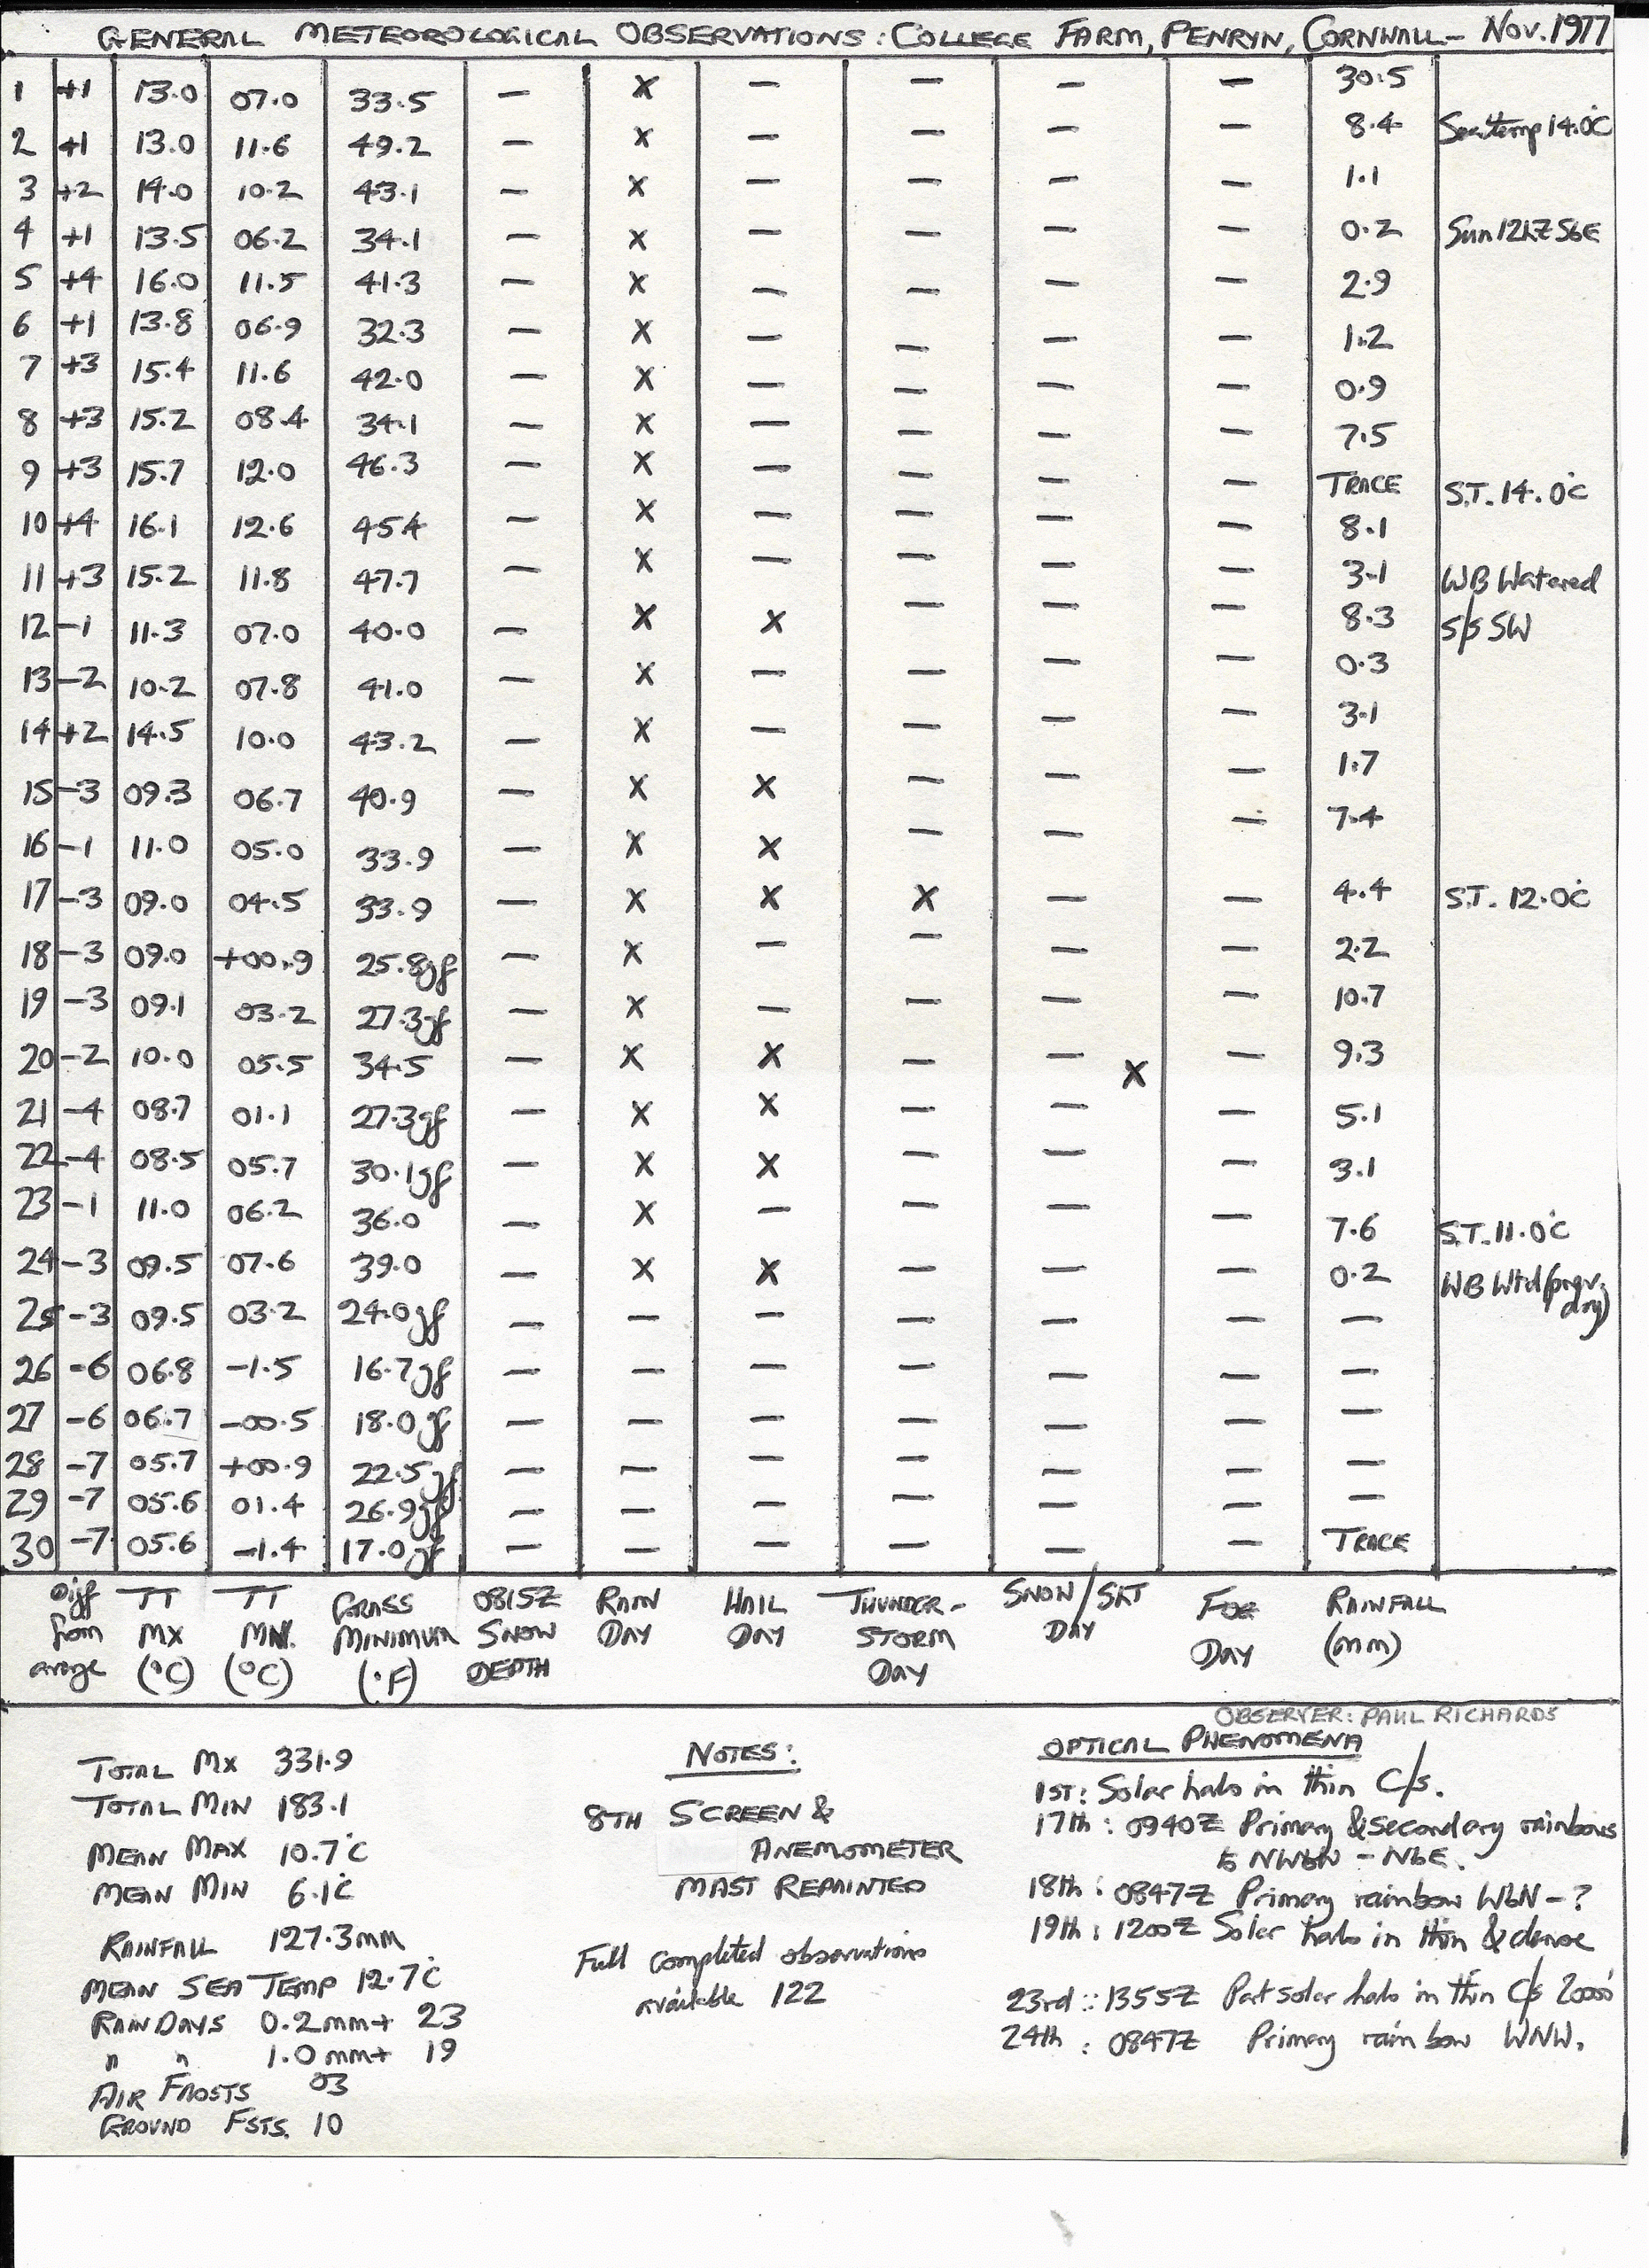 GENERAL METEOROLOGICAL OBSERVATIONS: COLLEGE FARM, PENRYN, CORNWALL - NOV. 1977
1 +1 13.0 07.0 33.5 — X — — — — 30.5
2 +1 13.0 11.6 49.2 — X — — — — 8.4 Sea temp 14.0°C
3 +2 14.0 10.2 43.1 — X — — — — 1.1
4 +1 13.5 06.2 34.1 — X — — — — 0.2 Sun 12hZ SbE
5 +4 16.0 11.5 41.3 — X — — — — 2.9
6 +1 13.8 06.9 32.3 — X — — — — 1.2
7 +3 15.4 11.6 42.0 — X — — — — 0.9
8 +3 15.2 08.4 34.1 — X — — — — 7.5
9 +3 15.7 12.0 46.3 — X — — — — TRACE S.T. 14.0°C
10 +4 16.1 12.6 45.4 — X — — — — 8.1
11 +3 15.2 11.8 47.7 — X — — — — 3.1 WB Watered
12 -1 11.3 07.0 40.0 — X X — — — 8.3 S/S SW
13 -2 10.2 07.8 41.0 — X — — — — 0.3
14 +2 14.5 10.0 43.2 — X — — — — 3.1
15 -3 09.3 06.7 40.9 — X X — — — 1.7
16 -1 11.0 05.0 33.9 — X X — — — 7.4
17 -3 09.0 04.5 33.9 — X X X — — 4.4 S.T. 12.0°C
18 -3 09.0 +00.9 25.8gf — X — — — — 2.2
19 -3 09.1 03.2 27.3gf — X — — — — 10.7
20 -2 10.0 05.5 34.5 — X X — — X — 9.3
21 -4 08.7 01.1 27.3gf — X X — — — 5.1
22 -4 08.5 05.7 30.1gf — X X — — — 3.1
23 -1 11.0 06.2 36.0 — X — — — — 7.6 S.T. 11.0°C
24 -3 09.5 07.6 39.0 — X X — — — 0.2 WB Wtd
25 -3 09.5 03.2 24.0gf — — — — — — — day)
26 -6 06.8 -1.5 16.7gf — — — — — — —
27 -6 06.7 -00.5 18.0gf — — — — — — —
28 -7 05.7 +00.9 22.5gf — — — — — — —
29 -7 05.6 01.4 26.9gf — — — — — — —
30 -7 05.6 -1.4 17.0gf — — — — — — TRACE
Diff TT TT GRASS 0815Z RAIN HAIL THUNDER- SNOW/SKT FOG RAINFALL
from MX MN. MINIMUM SNOW DAY DAY STORM DAY DAY (mm)
avrge (°C) (°C) (°F) DEPTH DAY
OBSERVER: PAUL RICHARDS
TOTAL MX 331.9
TOTAL MIN 183.1
MEAN MAX 10.7°C
MEAN MIN 6.1°C
RAINFALL 127.3mm
MEAN SEA TEMP 12.7°C
RAIN DAYS 0.2mm+ 23
" " 1.0mm+ 19
AIR FROSTS 03
GROUND FSTS. 10
NOTES:
8TH SCREEN &
ANEMOMETER
MAST REPAINTED
Full completed observations
available 122
OPTICAL PHENOMENA
1ST: Solar halo in thin C/s.
17th: 0940Z Primary & Secondary rainbows
to NWbW - NbE.
18th: 0847Z Primary rainbow WbN - ?
19th: 1200Z Solar halo in thin & dense
23rd: 1355Z Part solar halo in thin C/s 20000'
24th: 0847Z Primary rainbow WNW.